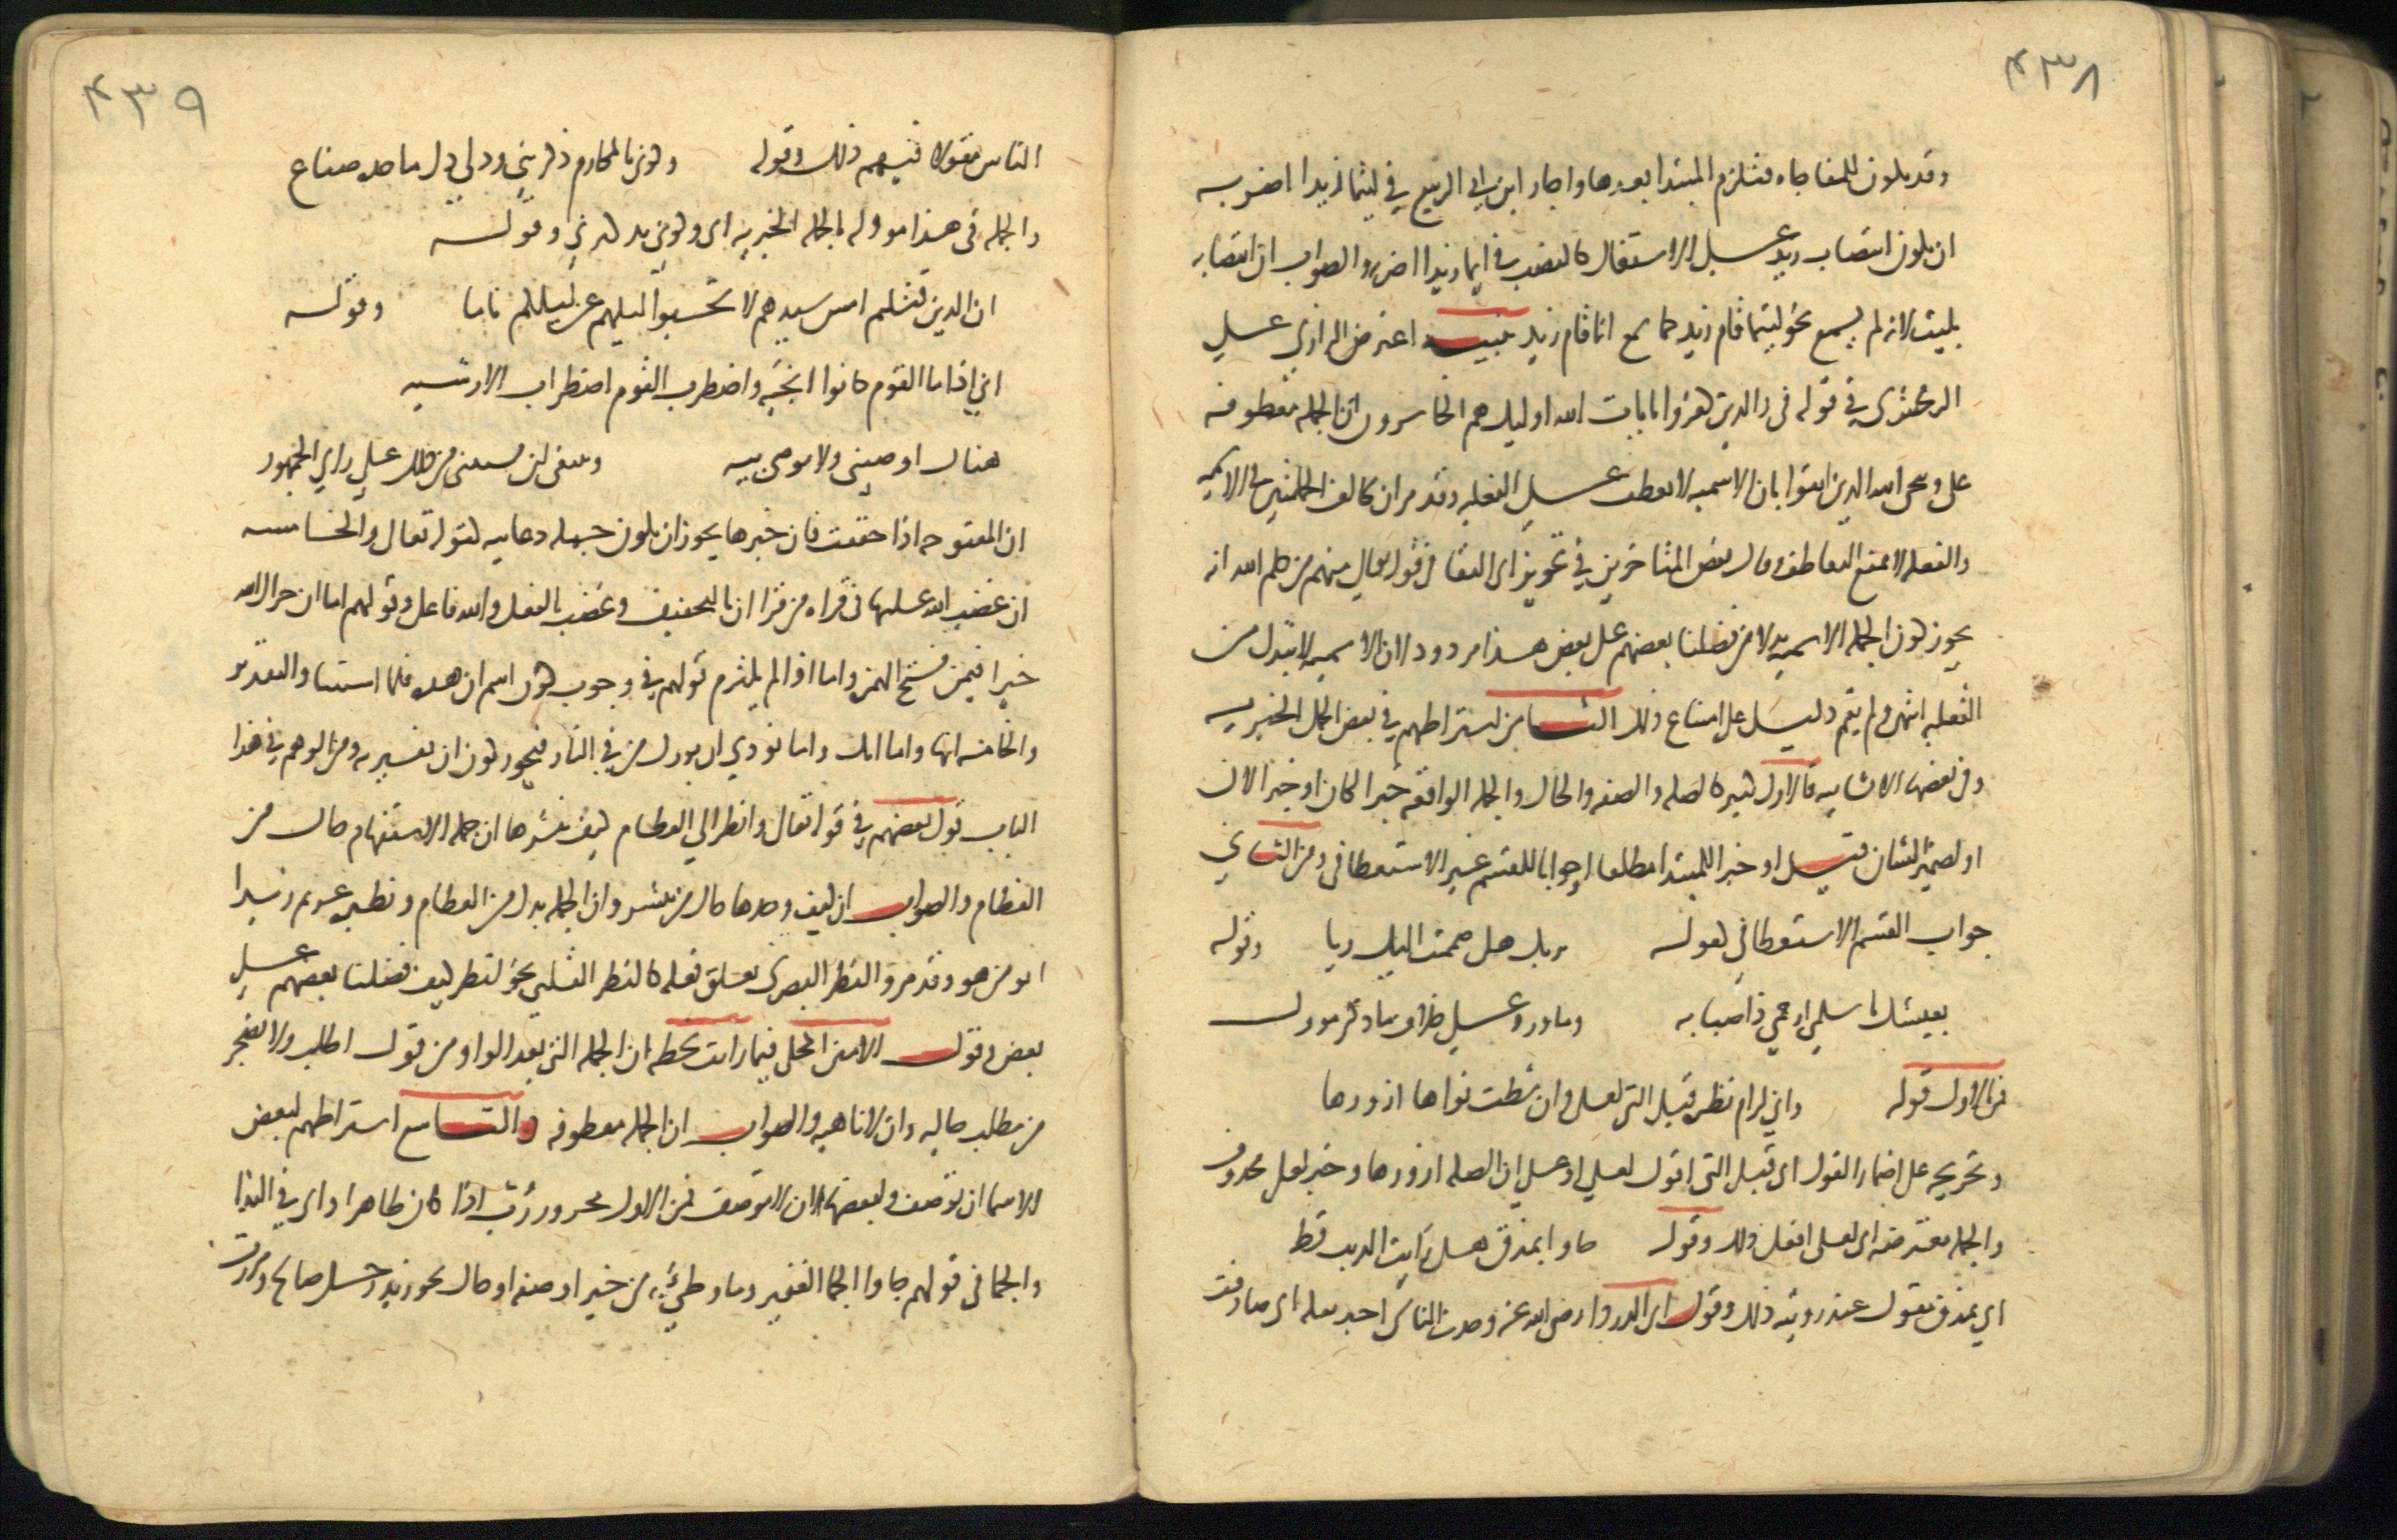 ٤٣٨
وقد يكون للمفاجاه فتلزم المبتدا بعدها واجاز ابن ابي الربيع في ليثما زيدا اضربه
ان يكون انتصاب زيد على الاشتغال كالنصب في ايما زيدا اضربه والصواب ان انتصابه
بليت لانه لم يسمع نحو ليثما قام زيد كما سمع انما قام زيد تنبيه اعترض الرازي على
الزمخشري في قوله في والذين كفروا بايات الله اوليك هم الخاسرون ان الجمله معطوفه
على وينجي الله الذين اتقوا بان الاسميه لا تعطف على الفعليه وقد مر ان تخالف الجملتين في الاسميه
والفعليه لا يمنع التعاطف وقال بعض المتاخرين في تجويز ابي البقا في قوله تعالى منهم من كلم الله انه
يجوز كون الجمله الاسميه بدلا من فضلنا بعضهم على بعض هذا مردود لان الاسميه لا تبدل من
الفعليه انتهى ولم يقم دليل على امتناع ذلك الثامن اشتراطهم في بعض الجمل الخبريه
وفي بعضها الانشاييه فالاول كثير كالصله والصفه والحال والجمله الواقعه خبرا لكان او خبرا لان
او لضمير الشان قيل او خبرا للمبتدا مطلقا او جوابا للقسم غير الاستعطافي ومن الثاني
جواب القسم الاستعطافي كقوله بربك هل ضممت اليك ليلى وقوله
بعيشك يا سلمى ارحمي ذا صبابه وما ورد على خلاف ما ذكر موول
فمن الاول قوله واني لرام نظره قبل التي لعلي وان شطت نواها ازورها
وتخريجه على اضمار القول اي قبل التي اقول لعلي او على ان الصله ازورها وخبر لعل محذوف
والجمله معترضه اي لعلي افعل ذلك وقوله جاوا بمذق هل رايت الذيب قط
اي بمذق مقول عند رويته ذلك وقول ابي الدرداء رضي الله عنه وجدت الناس اخبر تقله اي صادفت
٤٣٩
الناس مقولا فيهم ذلك وقوله وكوني بالمكارم ذكريني ودلي دل ماجده صناع
والجمله في هذا مووله بالجمله الخبريه اي وكوني تذكريني وقوله
ان الذين قتلتم امس سيدهم لا تحسبوا ليلهم عن ليلكم ناما وقوله
اني اذا ما القوم كانوا انجيه واضطرب القوم اضطراب الارشيه
هناك اوصيني ولا توصي بيه وينبغي ان يستثنى من ذلك على راي الجمهور
ان المفتوحه اذا خففت فان خبرها يجوز ان يكون جمله دعاييه كقوله تعالى والخامسه
ان غضب الله عليها في قراه من قرا ان بالتخفيف وغضب بالفعل والله فاعل وقولهم اما ان جزاك الله
خيرا فيمن فتح الهمزه واما اذا لم يلتزم قولهم في وجوب كون اسم ان هذه فلا استثنا والتقدير
والخامسه انها واما انك واما نودي ان بورك من في النار فيجوز كون ان تفسيريه ومن الوهم في هذا
الباب قول بعضهم في قوله تعالى وانظر الى العظام كيف ننشزها ان جمله الاستفهام حال من
العظام والصواب ان كيف وحدها حال من ننشز وان الجمله بدل من العظام ونظيره عرفت زيدا
ابو من هو وقد مر والنظر البصري يعلق فعله كالنظر القلبي نحو انظر كيف فضلنا بعضهم على
بعض وقول الامين المحلي فيما رايت بخطه ان الجمله التي بعد الواو من قوله اطلب ولا تضجر
من مطلب حاليه وان لا ناهيه والصواب ان الجمله معطوفه والتاسع اشتراطهم لبعض
الاسما ان توصف ولبعضها ان لا توصف فمن الاول مجرور رب اذا كان ظاهرا واي في الندا
والجما في قولهم جاوا الجما الغفير وما وطي به من خبر او صفه او حال نحو زيد رجل صالح ومررت